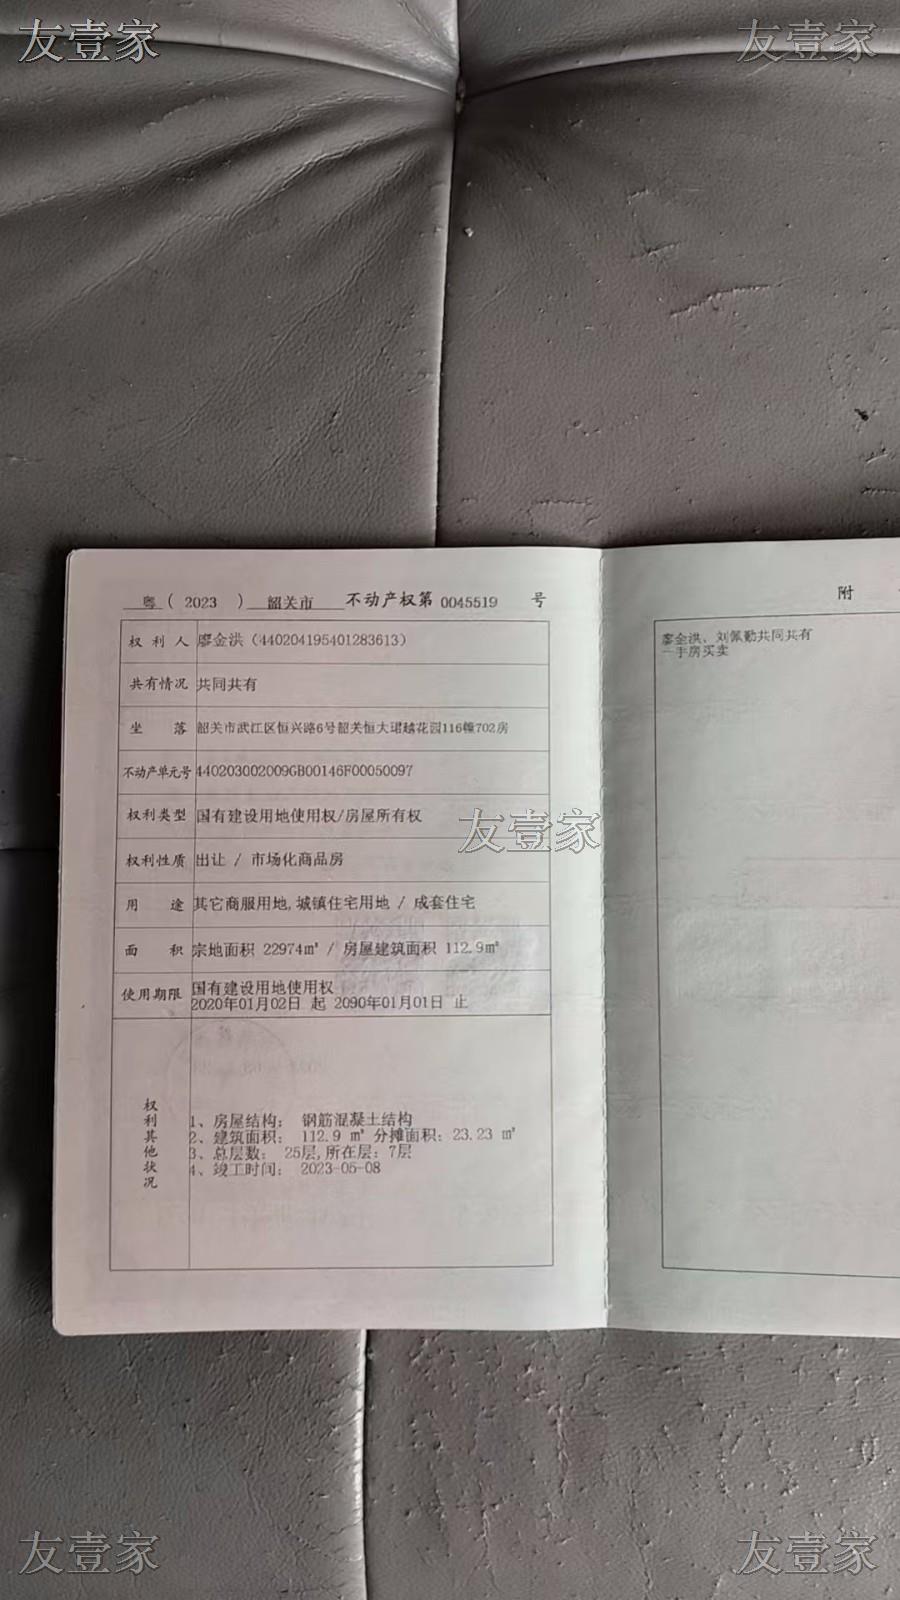 友壹家 友壹家
粤 ( 2023 ) 韶关市 不动产权第 0045519 号
权利人 廖金洪（440204195401283613）
共有情况 共同共有
坐落 韶关市武江区恒兴路6号韶关恒大珺越花园116幢702房
不动产单元号 440203002009GB00146F00050097
权利类型 国有建设用地使用权/房屋所有权
权利性质 出让 / 市场化商品房
用途 其它商服用地,城镇住宅用地 / 成套住宅
面积 宗地面积 22974㎡ / 房屋建筑面积 112.9㎡
使用期限 国有建设用地使用权
2020年01月02日 起 2090年01月01日 止
权利其他状况
1、房屋结构： 钢筋混凝土结构
2、建筑面积： 112.9 ㎡ 分摊面积：23.23 ㎡
3、总层数： 25层,所在层：7层
4、竣工时间： 2023-05-08
附
廖金洪、刘佩勤共同共有
一手房买卖
友壹家
友壹家 友壹家